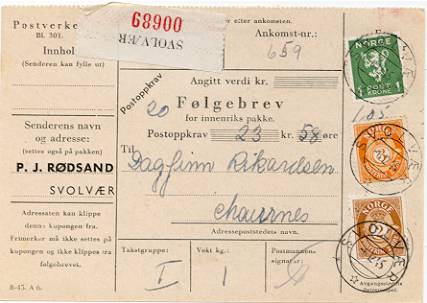 Postverke
Bl. 301.
Innhol
(Senderen kan fylle ut)
SVOLVÆR
00689
eller etter ankomsten.
Ankomst-nr.:
659
Angitt verdi kr.
Postoppkrav
20
Følgebrev
for innenriks pakke.
Postoppkrav 23 kr. 58 øre
Til
Dagfinn Rikardsen
Adressepoststedets navn.
Senderens navn
og adresse:
(settes også på pakken)
P. J. RØDSAND
SVOLVÆR
Adressaten kan klippe
denne kupongen fra.
Frimerker må ikke settes på
kupongen og ikke klippes fra
følgebrevet.
Takstgruppe:
I
Vekt kg.
1
Postmannens
signatur:
B-45. A 6.
NORGE
POST
KRONE
1
1
SVOLVÆR
NORGE
SVOLVÆR